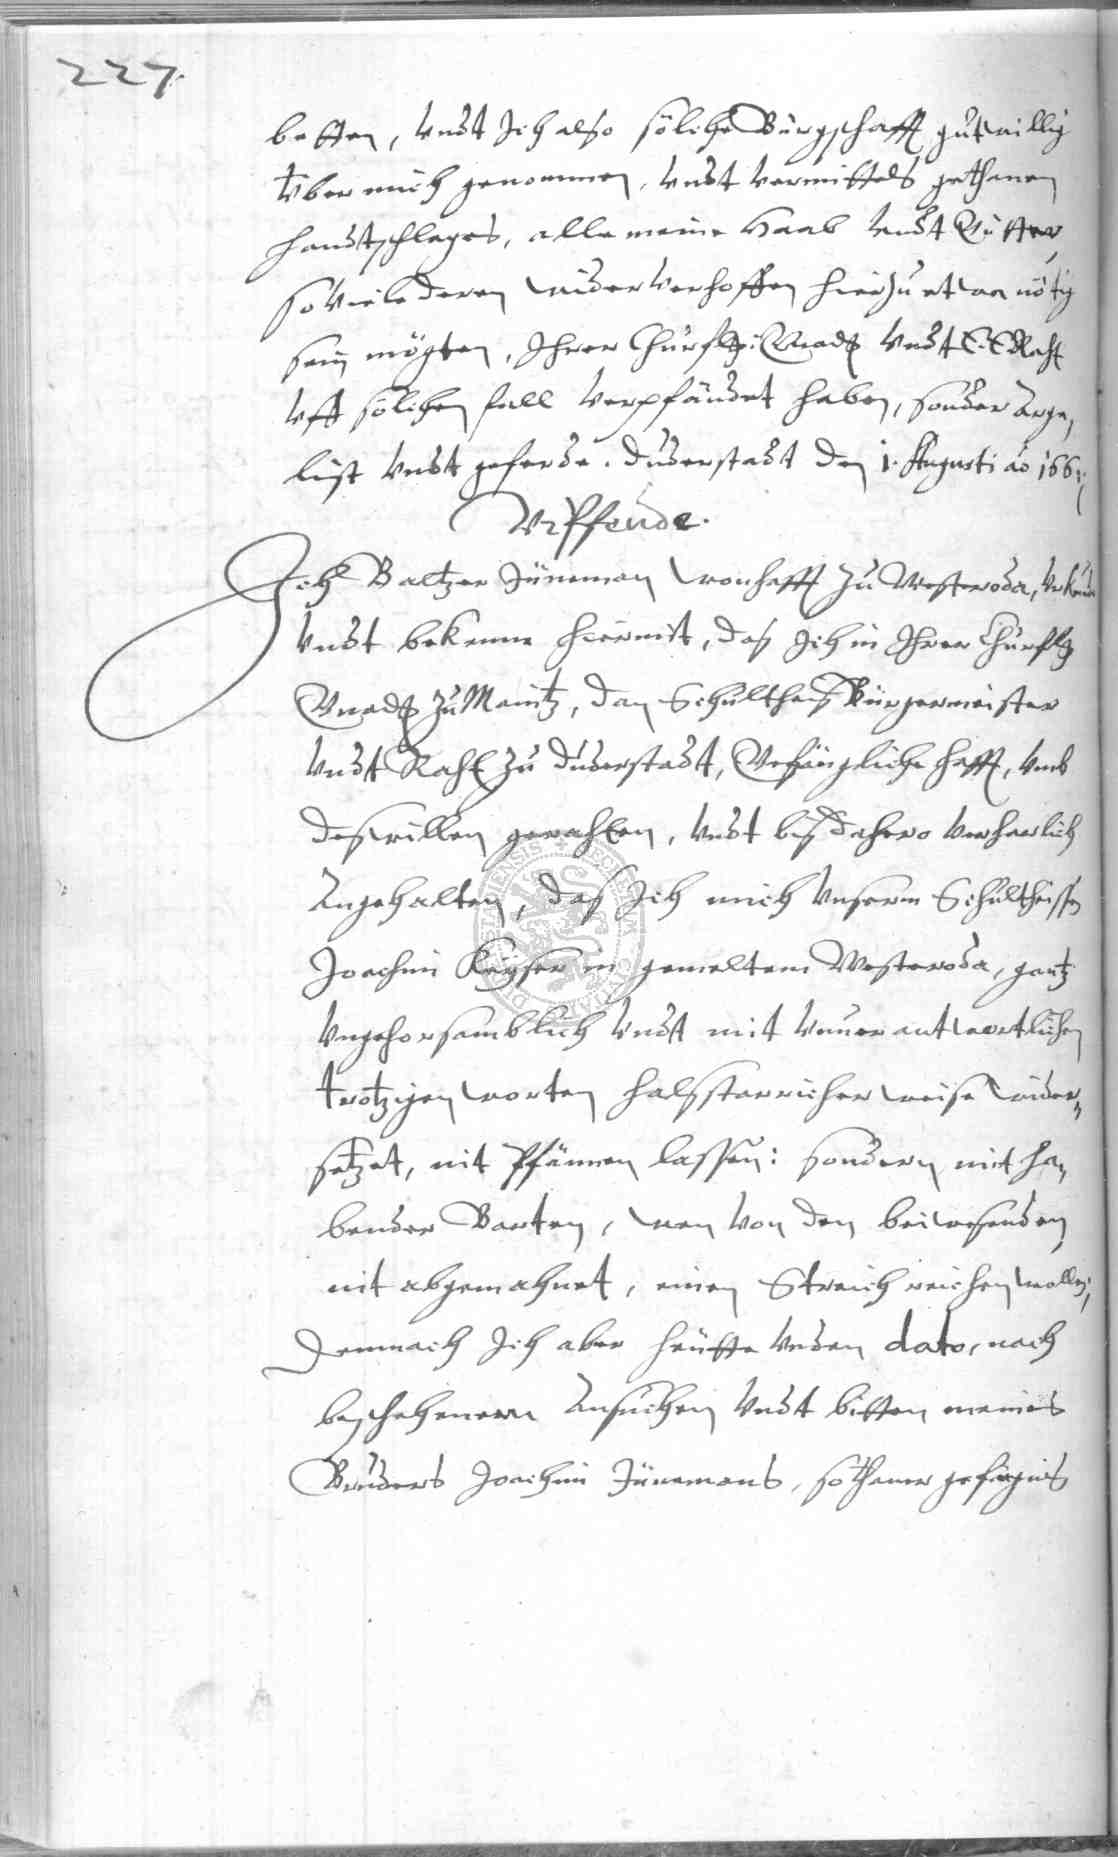 227.
betten, undt Ich also solche Bürgschafft gutwillig
über mich genommen, undt vermittels gethanen
handtschlages, alle meine Haab undt Gütter,
so viele deren wider verhoffen hierzu etwa nötig
sein mögten, Ihrer Churfl: Gnad undt E. E. Raht
uff solchen fall verpfändet haben, sonder arge,
list undt geferde. Duderstadt den 1. Augusti ao 166
Urpfende.
Ich Baltzer Jüneman wonhafft zu Westeroda, Urkunde
undt bekenne hiermit, das Ich in Ihrer Churfl
Gnad zu Maintz, dan Schultheis Bürgermeister
undt Raht zu Duderstadt, Gefängliche hafft, umb
deswillen gerahten, undt bis dahero verharlich
Angehalten, das Ich mich unserm Schultheissen
Joachim Keyser in gemeltem Westeroda, gantz
ungehorsamblich undt mit unuerantwortlichen
trotzigen worten halsstarricher weise wider,
setzet, nit Pfännen lassen: sondern mit ha,
bender Barten, wen von den beiwesenden
nit abgemahnet, einen Streich reichen wollen,
Demnach Ich aber heütte unden dato, nach
beschehenem Ansuchen undt bitten meines
Bruders Joachim Jünemans, sothaner gefägnis